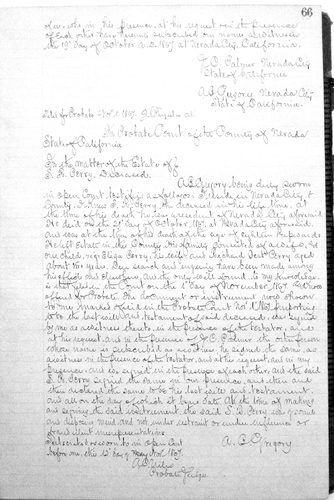 66
of us, who, in his presence, at his request and in the presence
of each other have hereunto subscribed our names as witnesses
the 19th day of October A.D. 1867 at Nevada City, California.
J. C. Palmer Nevada City
State of California
A. C. Gregory Nevada City
State of California.
Filed for Probate Nov. 1867.
In Probate Court of the County of Nevada
State of California
In the matter of the Estate of
S. H. Perry, Deceased
A. C. Gregory being duly sworn
in open Court, testifies as follows: I reside in Nevada City
County. I knew S. H. Perry the deceased in his life time, at
the time of his death he was a resident of Nevada aforesaid
He died on the 21st day of October 1867, at Nevada City aforesaid
and was at the time of his death, of the age of
He left Estate in this County. His family consisted of a wife, &
one child, Eliza Perry, his wife and Perry aged
about years. Due search and inquiry have been made among
his effects and elsewhere, and the only will found to my knowledge
is that filed in this Court on the day of November 1867, &
offered for Probate. The document or instrument now shown
to me marked filed in the Probate Court Nov. 1867, purporting
to be the last will and testament of said deceased, was signed
by me as a witness thereto, in the presence of the testator, and
at his request, and in the presence of J. C. Palmer the other person
whose name is subscribed as a witness he signed the same, as
a witness in the presence of the testator and at his request and in my
presence, and we signed in the presence of each other, and the said
S. H. Perry signed the same in our presence, and then and
there declared the same to be his last will and testament,
and all on the day of which it bears date. At the time of making
and signing the said instrument, the said S. H. Perry was of sound
and disposing mind, and not under restraint or undue influence or
fraudulent misrepresentations
Subscribed & sworn to in open Court
before me, this 12th day of Nov. 1867.
A. C. Gregory
Probate Judge.